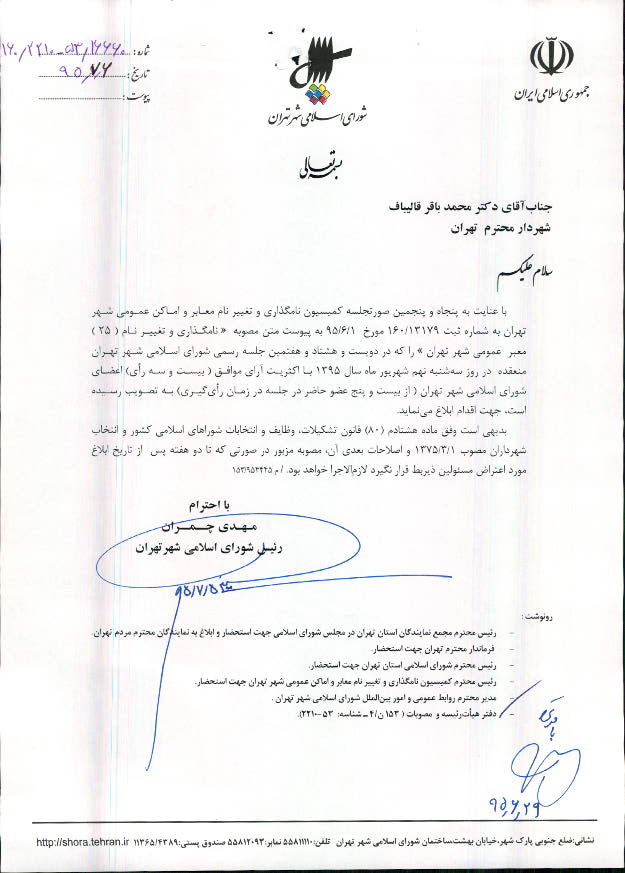 جمهوری اسلامی ایران
شورای اسلامی شهر تهران
شماره:
تاریخ: ۹۵/۷/۶
پیوست:
بسمه تعالی
جناب آقای دکتر محمد باقر قالیباف
شهردار محترم تهران
سلام علیکم
با عنایت به پنجاه و پنجمین صورتجلسه کمیسیون نامگذاری و تغییر نام معابر و اماکن عمومی شهر
تهران به شماره ثبت ۱۶۰/۱۳۱۷۹ مورخ ۹۵/۶/۱ به پیوست متن مصوبه «نامگذاری و تغییر نام (۲۵)
معبر عمومی شهر تهران» را که در دویست و هشتاد و هفتمین جلسه رسمی شورای اسلامی شهر تهران
منعقده در روز سه‌شنبه نهم شهریور ماه سال ۱۳۹۵ با اکثریت آرای موافق (بیست و سه رأی) اعضای
شورای اسلامی شهر تهران (از بیست و پنج عضو حاضر در جلسه در زمان رأی‌گیری) به تصویب رسیده
است، جهت اقدام ابلاغ می‌نماید.
بدیهی است وفق ماده هشتادم (۸۰) قانون تشکیلات، وظایف و انتخابات شوراهای اسلامی کشور و انتخاب
شهرداران مصوب ۱۳۷۵/۳/۱ و اصلاحات بعدی آن، مصوبه مزبور در صورتی که تا دو هفته پس از تاریخ ابلاغ
مورد اعتراض مسئولین ذیربط قرار نگیرد لازم‌الاجرا خواهد بود. / م ۱۵۳/۹۵۳۴۲۵
با احترام
مهدی چمران
رئیس شورای اسلامی شهر تهران
رونوشت:
- رئیس محترم مجمع نمایندگان استان تهران در مجلس شورای اسلامی جهت استحضار و ابلاغ به نمایندگان محترم مردم تهران.
- فرماندار محترم تهران جهت استحضار.
- رئیس محترم شورای اسلامی استان تهران جهت استحضار.
- رئیس محترم کمیسیون نامگذاری و تغییر نام معابر و اماکن عمومی شهر تهران جهت استحضار.
- مدیر محترم روابط عمومی و امور بین‌الملل شورای اسلامی شهر تهران.
- دفتر هیأت‌رئیسه و مصوبات (۱۵۳ن/۴ ـ شناسه: ۵۳-۲۲۱۰).
۹۵،۶،۲۹
نشانی: ضلع جنوبی پارک شهر، خیابان بهشت، ساختمان شورای اسلامی شهر تهران تلفن: ۵۵۸۱۱۱۱۰ نمابر: ۵۵۸۱۲۰۹۳ صندوق پستی: ۱۱۳۶۵/۴۳۸۹ http://shora.tehran.ir